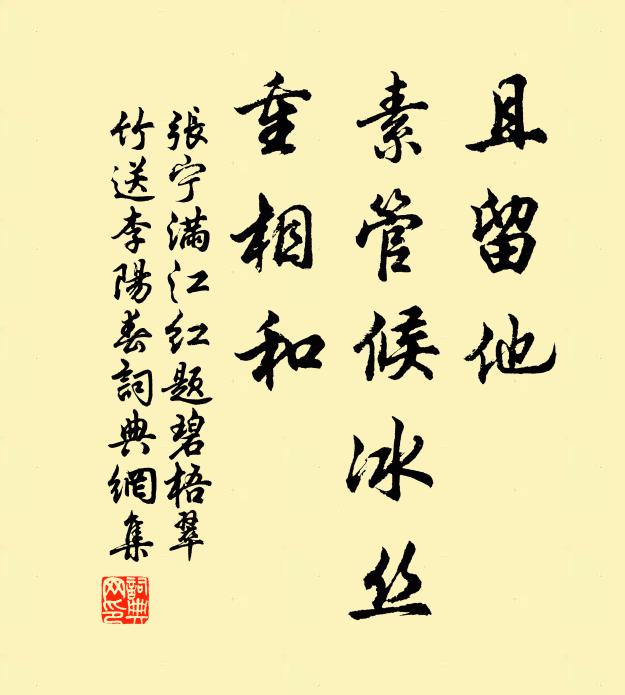 且留他
素管候冰丝
重相和
張宁满江红题碧梧翠
竹送李陽春詞典網集
詞典网印